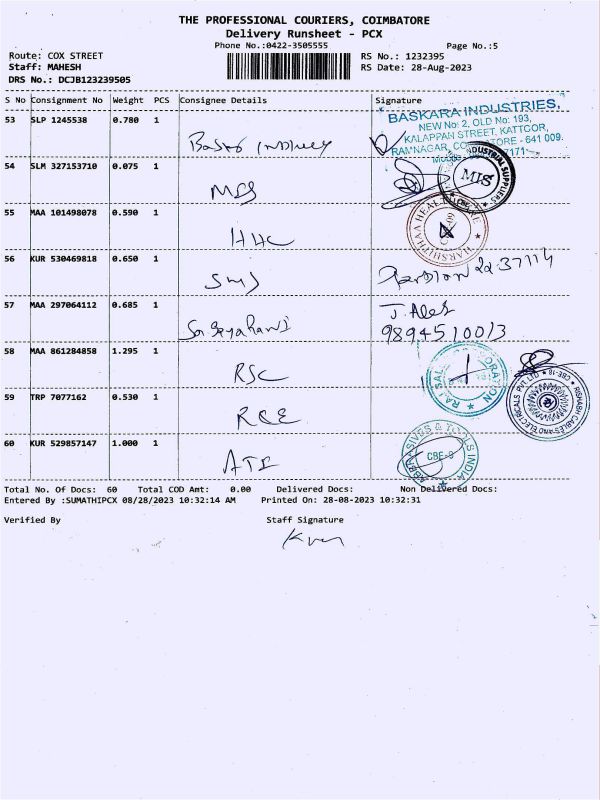 THE PROFESSIONAL COURIERS, COIMBATORE
Delivery Runsheet - PCX
Phone No.:0422-3505555
Page No.:5
Route: COX STREET
RS No.: 1232395
Staff: MAHESH
RS Date: 28-Aug-2023
DRS No.: DCJB123239505
S No Consignment No Weight PCS Consignee Details Signature
53 SLP 1245538 0.780 1
BASKARA INDUSTRIES,
NEW No: 2, OLD No: 193,
KALAPPAN STREET, KATTOOR,
RAMNAGAR, - 641 009.
54 SLM 327153710 0.075 1 MIS
INDUSTRIAL SUPPLIERS
55 MAA 101498078 0.590 1 HHC
56 KUR 530469818 0.650 1 SMS
57 MAA 297064112 0.685 1
J. Alex
9894510013
58 MAA 861284858 1.295 1 RSC
59 TRP 7077162 0.530 1 RCE
RISHABH CABLES AND ELECTRICALS PVT. LTD * CBE-18 *
60 KUR 529857147 1.000 1 ATI
& TOOLS INDIA
CBE-9
Total No. Of Docs: 60 Total COD Amt: 0.00 Delivered Docs: Non Delivered Docs:
Entered By :SUMATHIPCX 08/28/2023 10:32:14 AM Printed On: 28-08-2023 10:32:31
Verified By Staff Signature